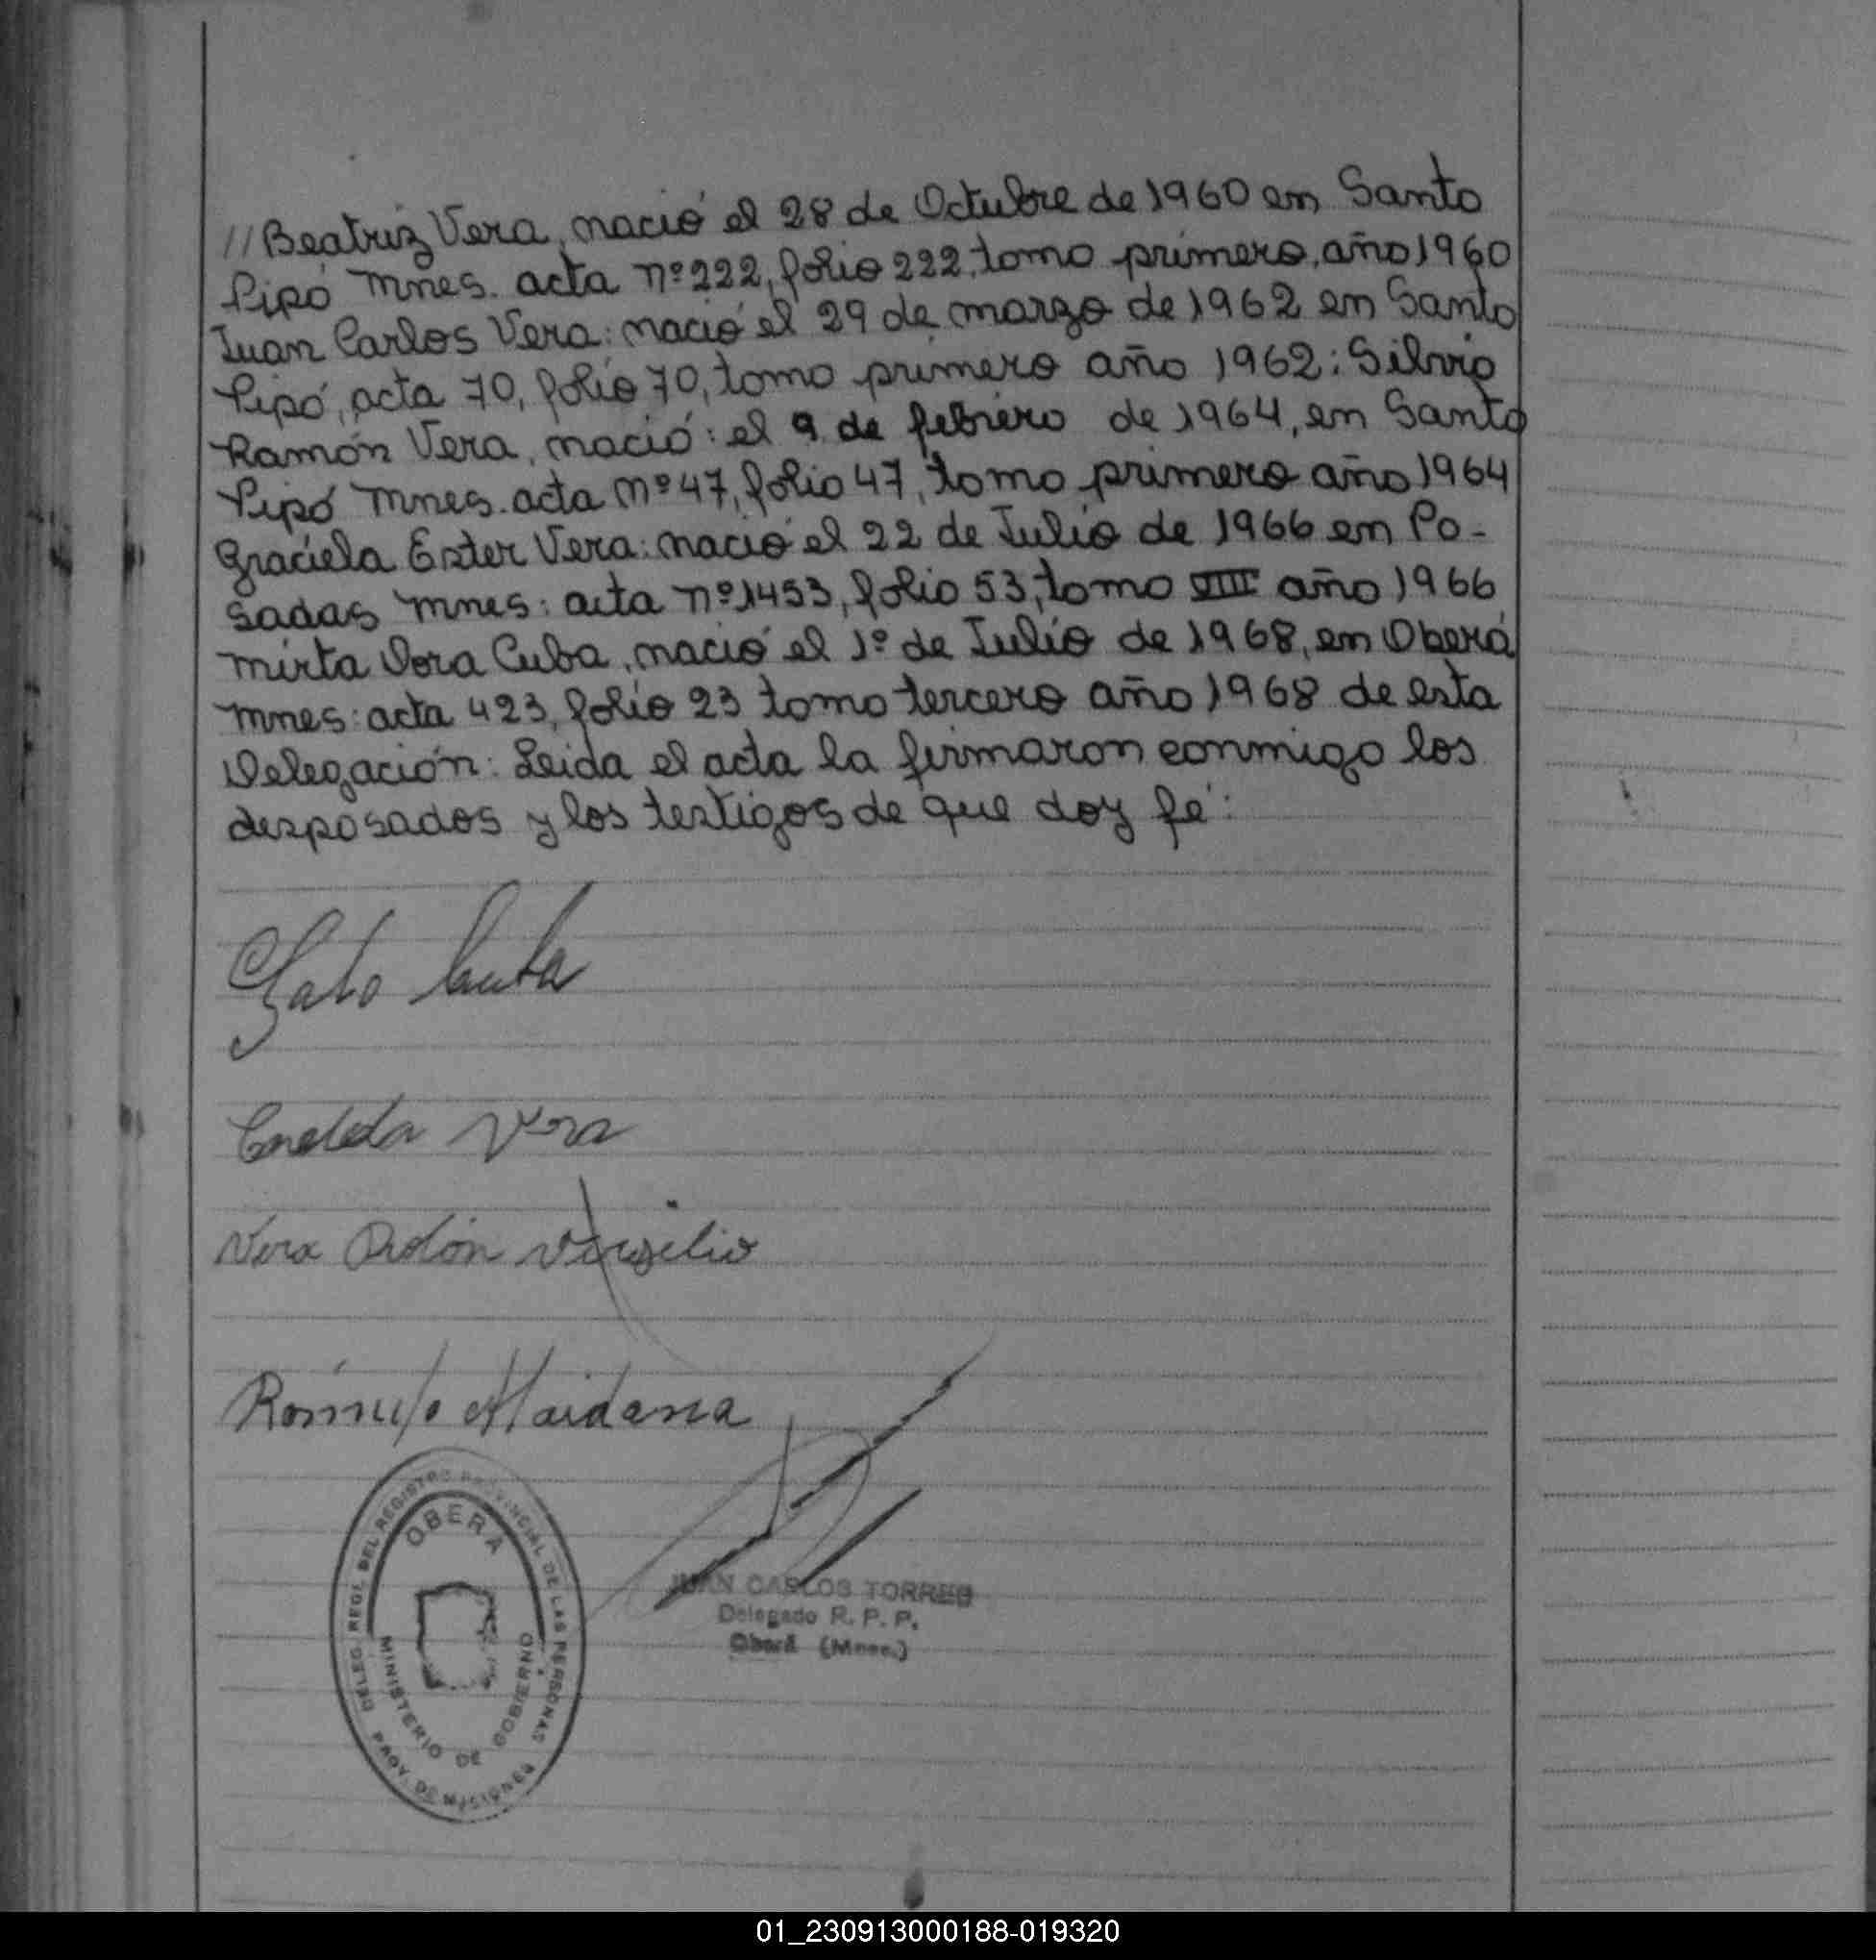 //Beatriz Vera, nació el 28 de Octubre de 1960 en Santo
Pipó Mnes. acta Nº 222, folio 222, tomo primero, año 1960
Juan Carlos Vera: nació el 29 de marzo de 1962 en Santo
Pipó, acta 70, folio 70, tomo primero año 1962: Silvio
Ramón Vera, nació: el 9 de febrero de 1964, en Santo
Pipó Mnes. acta Nº 47, folio 47, tomo primero año 1964
Graciela Ester Vera: nació el 22 de Julio de 1966 en Po-
sadas Mnes: acta nº 1453, folio 53, tomo VIII año 1966
Mirta Dora Cuba, nació el 1º de Julio de 1968, en Oberá
Mnes: acta 423, folio 23 tomo tercero año 1968 de esta
Delegación: Leida el acta la firmaron conmigo los
desposados y los testigos de que doy fé:
Cuba
Vera
Vera Virgilio
Rómulo Maidana
DELEG. REGL. DEL REGISTRO PROVINCIAL DE LAS PERSONAS
OBERA
MINISTERIO DE GOBIERNO
PROV. DE MISIONES
JUAN CARLOS TORRES
Delegado R. P. P.
Oberá (Mnes.)
01_230913000188-019320